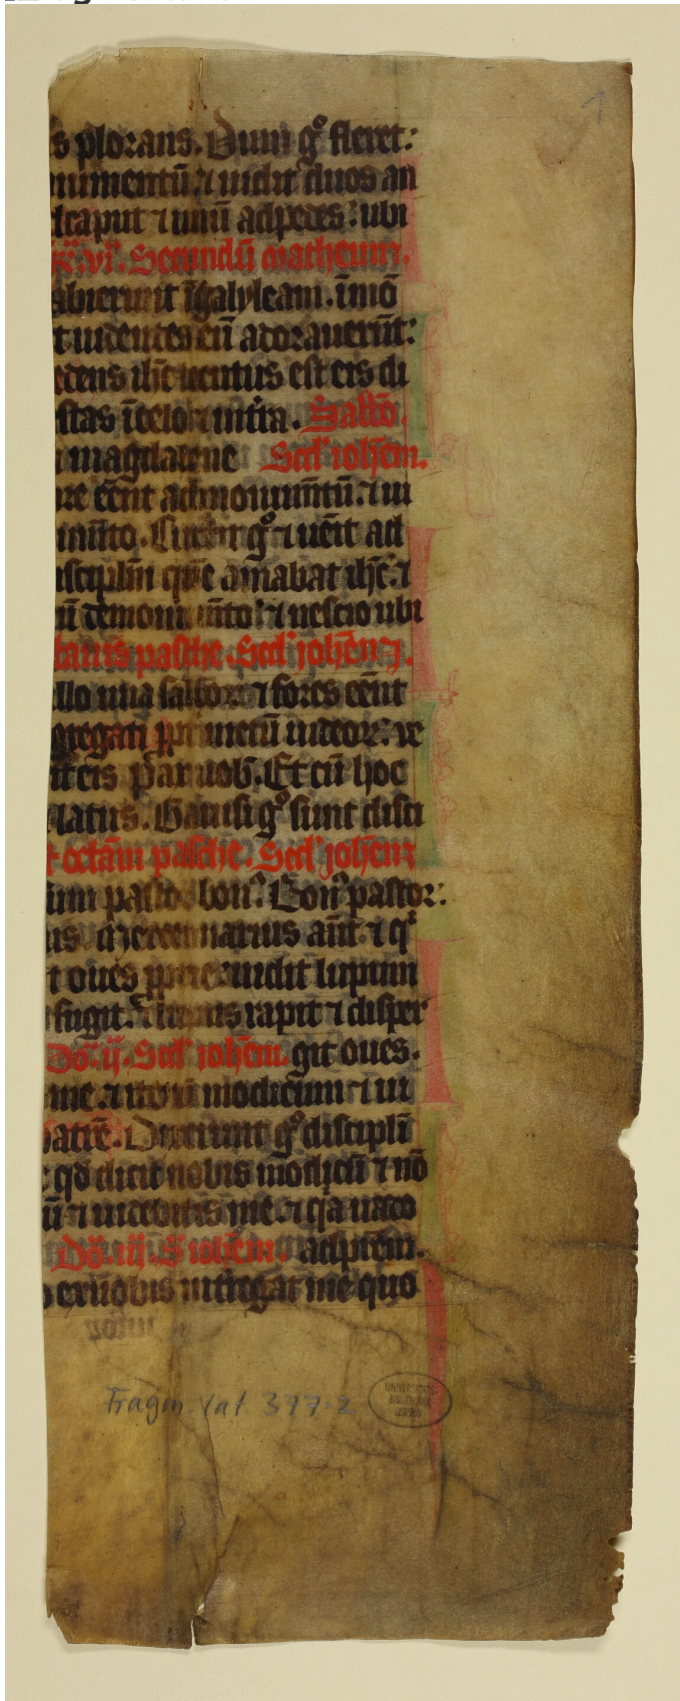 s plorans. Dum gͦ fleret:
numentū. ⁊ uidit duos an
dcaput ⁊ unū adpedes: ubi
vi. Secundū matheum.
abierunt īgalyleam. īmō
t uidentes eū adorauerūt:
edens ihc̄ locutus est eis di
estas ī celo ⁊ int̄ra. Sabbō.
magdalene Scd' ioh̄em.
re cēnt admonum̄tū: ⁊ ui
num̄to. Currit gͦ ⁊ uēit ad
iscipl̄m quē amabat ihc̄. ⁊
ū demonum̄to: ⁊ nescio ubi
tauis pasche. Scd' ioh̄em.
illo una sabbox ⁊ fores cēnt
gregati pp̄ metū iudeoꝝ: ue
it eis Pax uob̄. Et cū hoc
latus. Gauisi gͦ sunt disci
t octām pasche. Scd' ioh̄em
sum pastor bonꝰ. Bonꝰ pastor:
us. Mercennarius aūt. ⁊ qͥ
t oues pprie: uidit lupum
fugit. ⁊ lupus rapit ⁊ disper
Do. ij. Scd' ioh̄em. git oues.
me. ⁊ itеrū modicum ⁊ ui
patrē. Dixerunt gͦ discipli
qd̄ dicit nobis modicū ⁊ nō
ū ⁊ uidebitis me. ⁊ q̄a uado
Do. iij. S ioh̄em. adpr̄em.
o exuobis int̄rogat me quo
Fragm. lat. 377-2